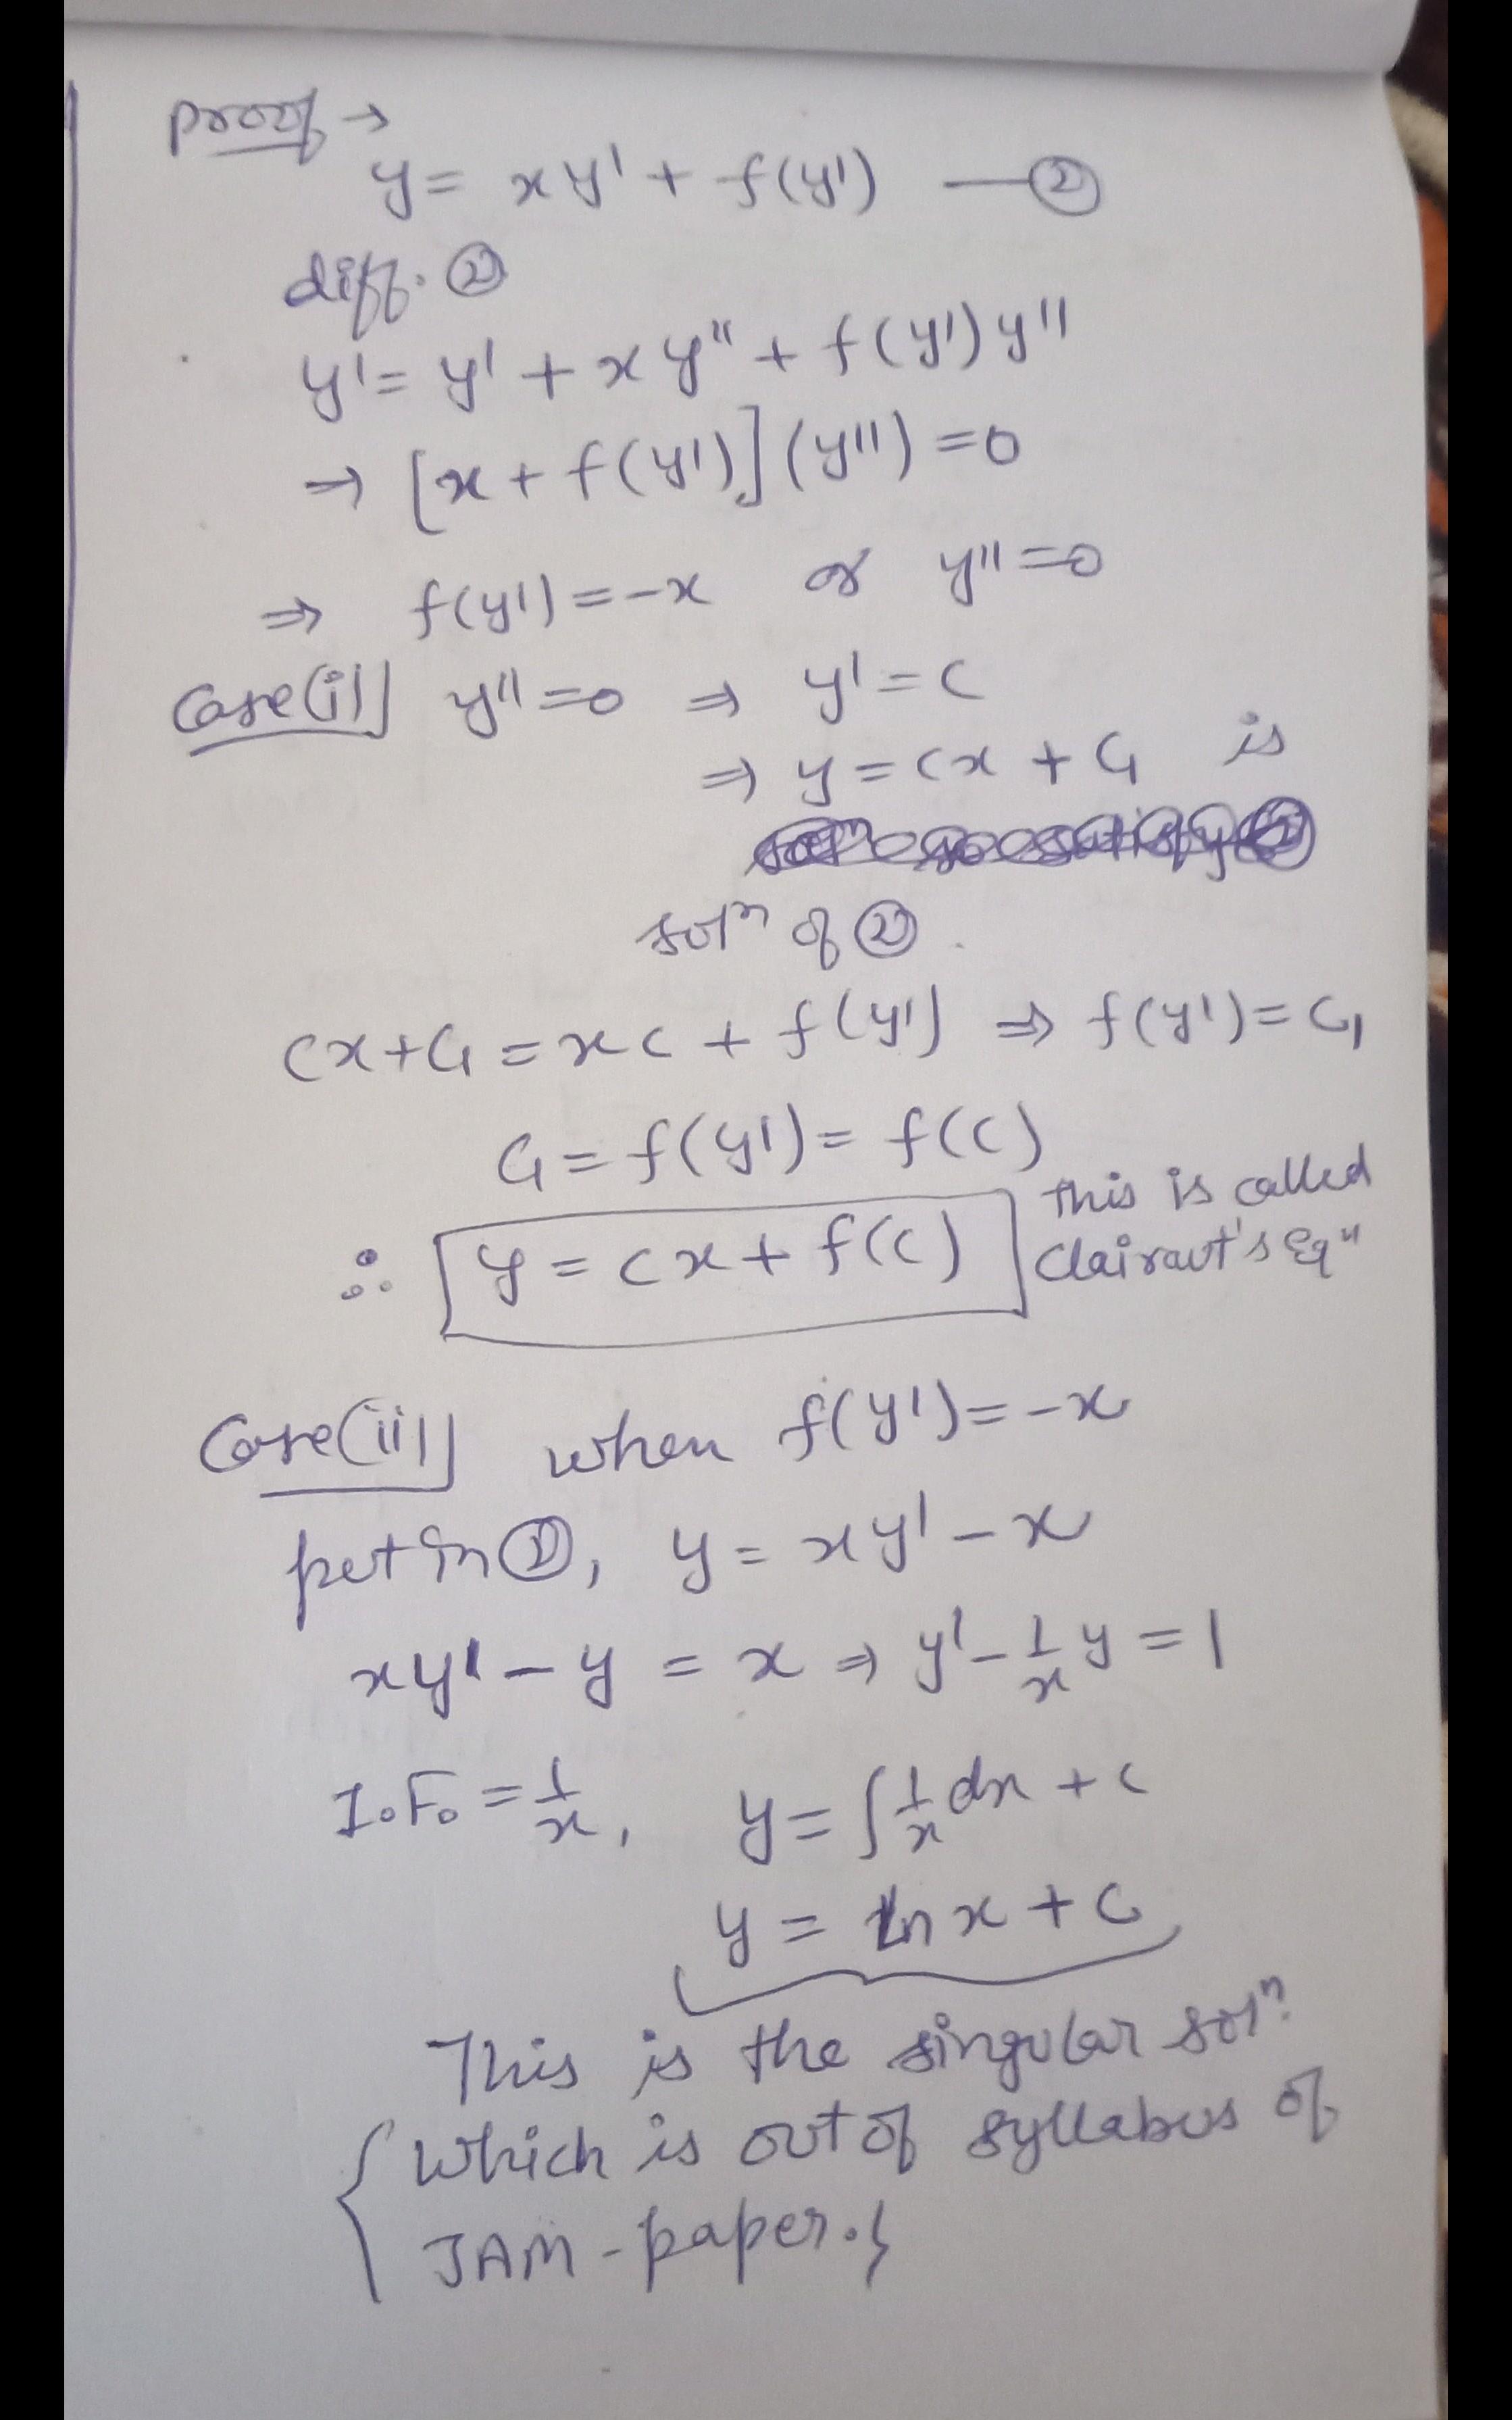 Proof →
y = xy' + f(y') —②
diff. ②
y' = y' + xy'' + f(y')y''
⇒ [x + f(y')](y'') = 0
⇒ f(y') = -x or y'' = 0
Case(i) y'' = 0 ⇒ y' = c
⇒ y = cx + C₁ is
solⁿ of ②.
cx + C₁ = xc + f(y') ⇒ f(y') = C₁
C₁ = f(y') = f(c)
∴ y = cx + f(c) This is called Clairaut's Eqⁿ
Case(ii) when f(y') = -x
put in ②, y = xy' - x
xy' - y = x ⇒ y' - 1/x y = 1
I.F. = 1/x, y = ∫ 1/x dx + c
y = ln x + c
This is the singular solⁿ.
{ Which is out of syllabus of
JAM - paper. }